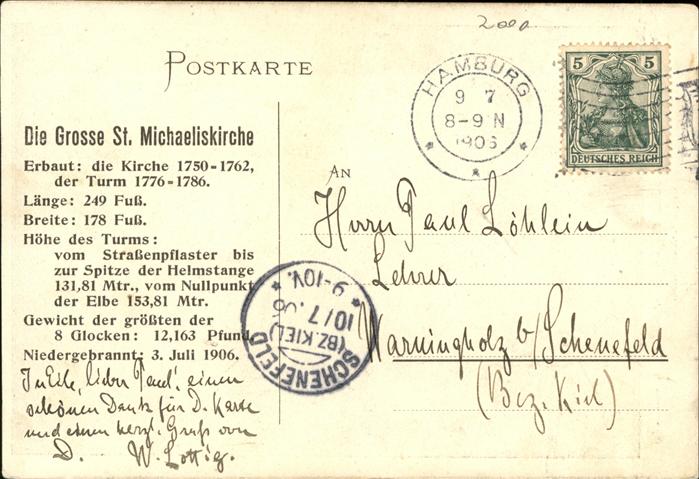 2000
POSTKARTE
HAMBURG
9 7
8-9 N
1906
5 5
DEUTSCHES REICH
Die Grosse St. Michaeliskirche
Erbaut: die Kirche 1750-1762,
der Turm 1776-1786.
Länge: 249 Fuß.
Breite: 178 Fuß.
Höhe des Turms:
vom Straßenpflaster bis
zur Spitze der Helmstange
131,81 Mtr., vom Nullpunkt
der Elbe 153,81 Mtr.
Gewicht der größten der
8 Glocken: 12,163 Pfund.
Niedergebrannt: 3. Juli 1906.
In Eile, lieber Paul, einen
schönen Dank für D. Karte
und einen herzl. Gruß von
D. W. Lottig.
AN
Herrn Paul Löhlein
Lehrer
Warningholz b/Schenefeld
(Bez. Kiel)
SCHENEFELD
(BZ. KIEL)
10/7.06
9-10V.